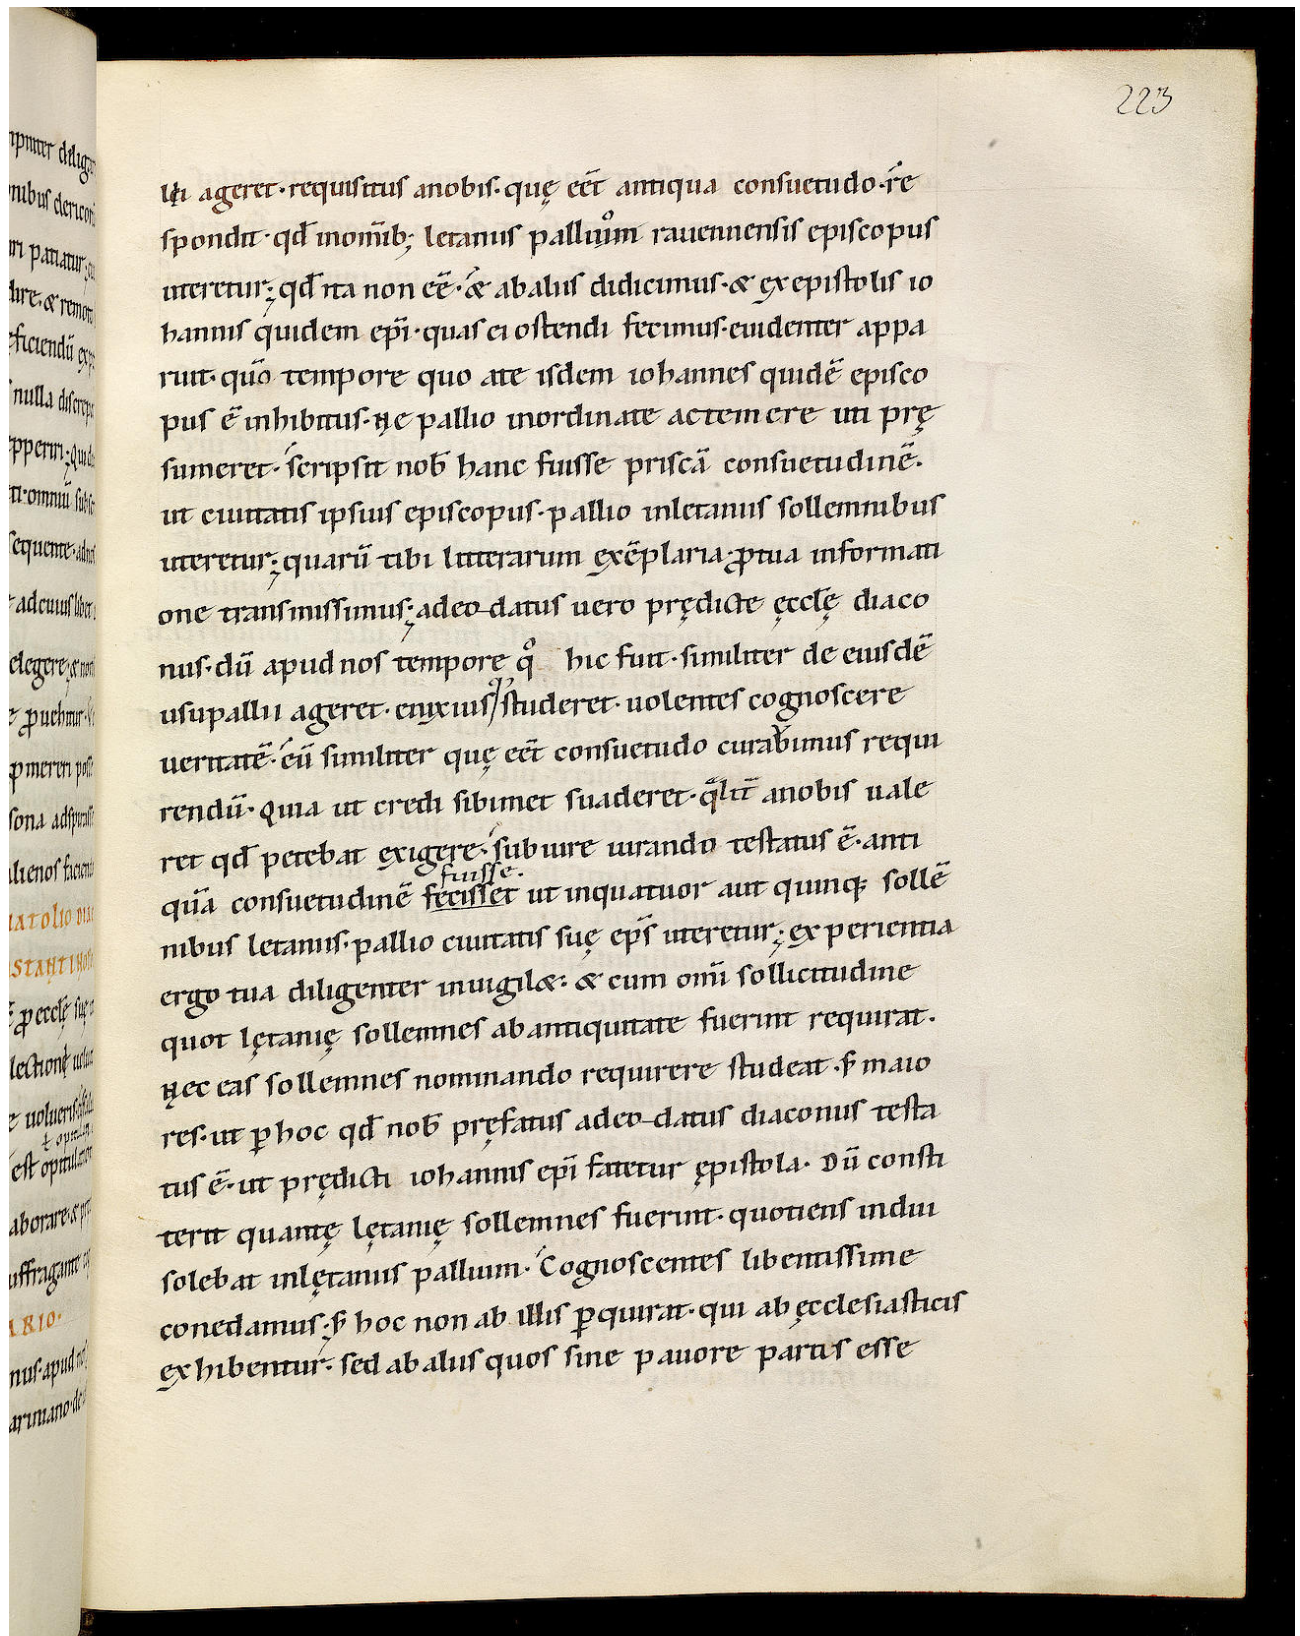 223
ui ageret· requisitus anobis· quę eēt antiqua consuetudo· re
spondit· qđ inomīb; letaniis palliuͦm rauennensis episcopus
uteretur; qđ ita non eē· & abaliis didicimus· & exepistolis io
hannis quidem ep̄i· quas ei ostendi fecimus· euidenter appa
ruit· qūo tempore quo ate isdem iohannes quidē episco
pus ē inhibitus· Ne pallio inordinate actemere uti prę
sumeret· scripsit nob̄ hanc fuisse priscā consuetudinē·
ut ciuitatis ipsius episcopus· pallio inletaniis sollemnibus
uteretur; quarū tibi litterarum exēplaria ꝓtua informati
one transmissimus; adeo-datus uero prędicte ęccłę diaco
nus· dū apud nos tempore qͦ hic fuit· similiter de eiusdē
usupallii ageret· enixius studeret· uolentes cognoscere
ueritatē· eū similiter quę eēt consuetudo curabimus requi
rendū· Quia ut credi sibimet suaderet· qͣlit̄ anobis uale
ret qđ petebat exigere· subiure iurando testatus ē· anti
quā consuetudinē fecisset ut inquatuor aut quinq; sollē
fuisse·
nibus letaniis· pallio ciuitatis suę ep̄s uteretur; experientia
ergo tua diligenter inuigil&· & cum omī sollicitudine
quot lętanię sollemnes abantiquitate fuerint requirat·
Nec eas sollemnes nominando requirere studeat· s̄ maio
res· ut ꝑ hoc qđ nob̄ pręfatus adeo-datus diaconus testa
tus ē· ut prędicti iohannis ep̄i fatetur ępistola· Dū consti
terit quantę lętanię sollemnes fuerint· quotiens indui
solebat inlętaniis pallium· Cognoscentes libentissime
conedamus· s̄ hoc non ab illis ꝑquirat· qui ab ęcclesiasticis
exhibentur· sed abaliis quos sine pauore partis esse